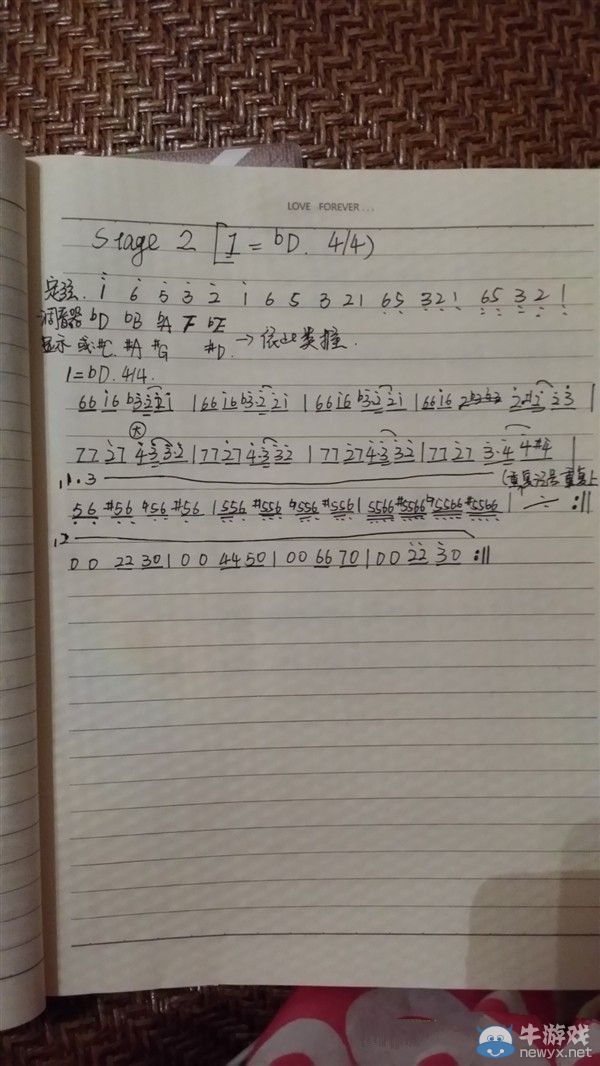 LOVE FOREVER...
Stage 2 [1=bD. 4/4)
定弦. i̇ 6̇ 5̇ 3̇ 2̇ 1̇ 6 5 3 2 1 6̣ 5̣ 3̣ 2̣ 1̣ 6̣ 5̣ 3̣ 2̣ 1̣
调音器 bD bB bA F bE
显示 或 #C #A #G #D. → 依此类推.
1=bD. 4/4.
66 i̇6 b3̇·2̇ 2̇i̇ | 66 i̇6 b3̇·2̇ 2̇i̇ | 66 i̇6 b3̇·2̇ 2̇i̇ | 66 i̇6 2̇·#1̇ 2̇ 3̇ |
大
77 2̇7 4̇·3̇ 3̇·2̇ | 77 2̇7 4̇·3̇ 3̇2̇ | 77 2̇7 4̇·3̇ 3̇2̇ | 77 2̇7 3̇·4̇ 4̇#4̇ |
1.3 重复上
56 #56 56 #56 | 556 #556 556 #556 | 5566 #5566 5566 #5566 | :||
2
0 0 22 30 | 0 0 44 50 | 0 0 66 70 | 0 0 2̇2̇ 3̇0 :||
牛游戏
newyx.net